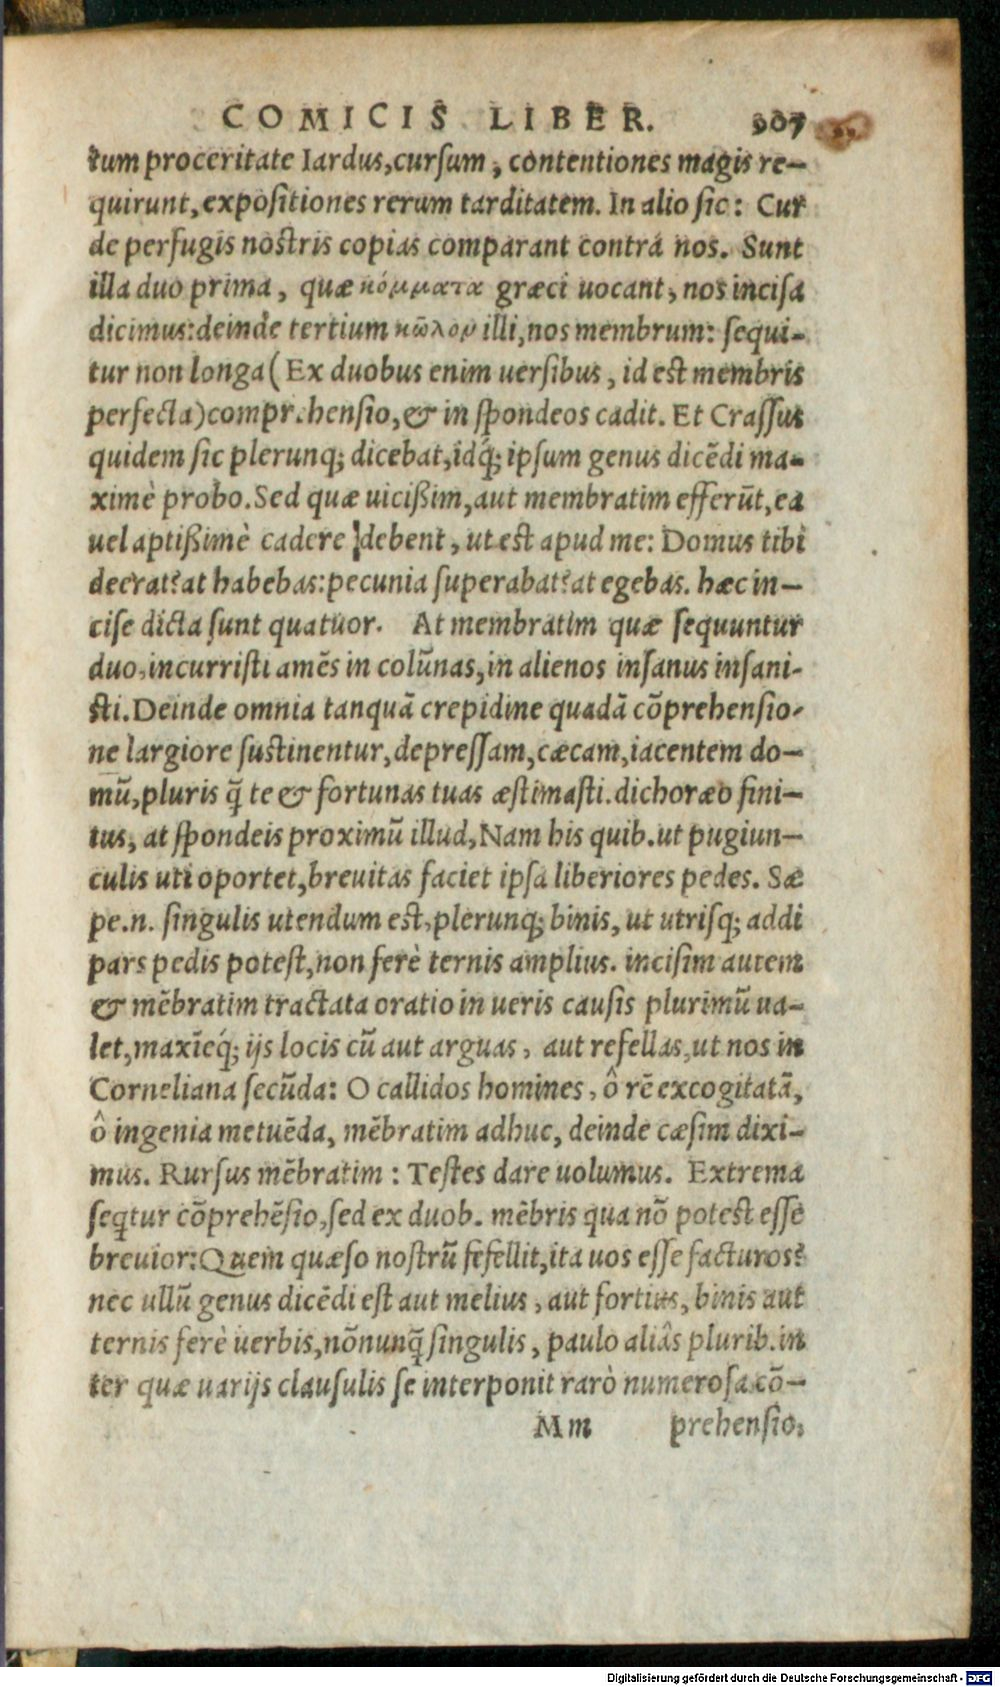 COMICIS LIBER. 907
tum proceritate Iardus,cursum, contentiones magis re-
quirunt,expositiones rerum tarditatem. In alio sic: Cur
de perfugis nostris copias comparant contrà nos. Sunt
illa duo prima, quæ κόμματα græci uocant, nos incisa
dicimus:deinde tertium κῶλον illi,nos membrum: sequi-
tur non longa (Ex duobus enim uersibus, id est membris
perfecta) comprehensio,& in spondeos cadit. Et Crassus
quidem sic plerunq; dicebat,idq́; ipsum genus dicēdi ma-
ximè probo.Sed quæ uicißim,aut membratim efferūt,ea
uel aptißimè cadere debent, ut est apud me: Domus tibi
deerat?at habebas:pecunia superabat?at egebas. hæc in-
cise dicta sunt quatuor. At membratim quæ sequuntur
duo,incurristi amēs in colūnas,in alienos insanus insani-
sti.Deinde omnia tanquā crepidine quadā cōprehensio-
ne largiore sustinentur,depressam,cæcam,iacentem do-
mū,pluris q̄ te & fortunas tuas æstimasti.dichoræo fini-
tus, at spondeis proximū illud,Nam his quib.ut pugiun-
culis uti oportet,breuitas faciet ipsa liberiores pedes. Sæ
pe.n. singulis utendum est,plerunq; binis, ut utrisq; addi
pars pedis potest,non ferè ternis amplius. incisim autem
& mēbratim tractata oratio in ueris causis plurimū ua-
let,maxīeq́; ijs locis cū aut arguas, aut refellas,ut nos in
Corneliana secūda: O callidos homines, ô rē excogitatā,
ô ingenia metuēda, mēbratim adhuc, deinde cæsim dixi-
mus. Rursus mēbratim: Testes dare uolumus. Extrema
seq̄tur cōprehēsio,sed ex duob. mēbris qua nō potest esse
breuior:Quem quæso nostrū fefellit,ita uos esse facturos?
nec ullū genus dicēdi est aut melius, aut fortius, binis aut
ternis ferè uerbis,nōnunq̄ singulis, paulo aliâs plurib.in
ter quæ uarijs clausulis se interponit rarò numerosa cō-
Mm prehensio,
Digitalisierung gefördert durch die Deutsche Forschungsgemeinschaft - DFG